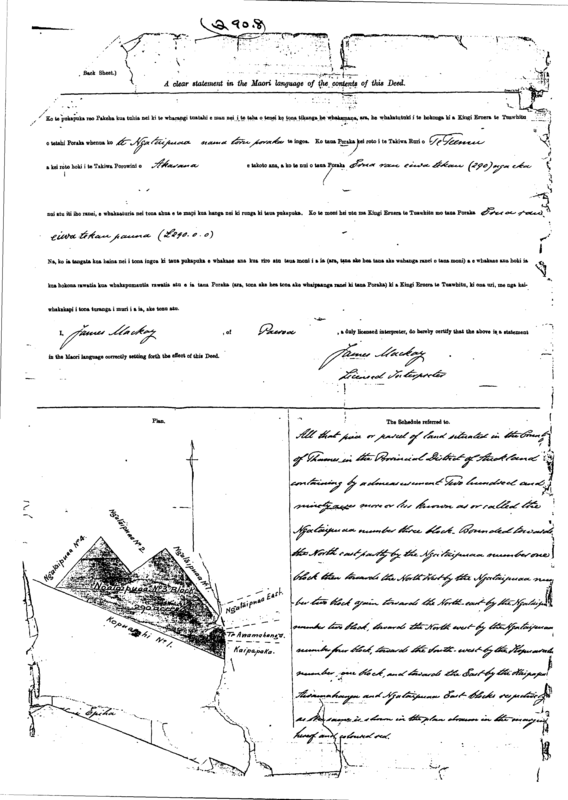 (290.8)
Back Sheet.)
A clear statement in the Maori language of the contents of this Deed.
Ko te pukapuka reo Pakeha kua tuhia nei ki te wharangi tuatahi e man nei i te taha o tenei ko tona tikanga he whakamana, ara, he whakatutuki i te hokonga ki a Kingi Eruera te Tuawhitu
o tetahi Poraka whenua ko te Ngataipuaa nama toru poraka te ingoa. Ko taua Poraka kei roto i te Takiwa Ruri o Te Temu
a kei roto hoki i te Takiwa Porowini o Akarana e takoto ana, a ko te nui o taua Poraka Erua rau eiwa tekau (290) nga eka
nui atu iti iho ranei, e whakaaturia nei tona ahua e te mapi kua hanga nei ki runga ki taua pukapuka. Ko te moni kei utu ma Kingi Eruera te Tuawhitu mo taua Poraka Erua rau
eiwa tekau pauna (£290.0.0)
Na, ko ia tangata kua haina nei i tona ingoa ki taua pukapuka e whakaae ana kua riro atu taua moni i a ia (ara, tana ake hea tana ake wahanga ranei o taua moni) a e whakaae ana hoki ia
kua hokona rawatia kua whakapumautia rawatia atu e ia taua Poraka (ara, tona ake hea tona ake whaipaanga ranei ki taua Poraka) ki a Kingi Eruera te Tuawhitu, ki ona uri, me nga kai-
whakakapi i tona turanga i muri i a ia, ake tonu atu.
I, James Mackay, of Paeroa, a duly licensed interpreter, do hereby certify that the above is a statement
in the Maori language correctly setting forth the effect of this Deed.
James Mackay
Licensed Interpreter
Plan.
Ngataipuaa No 4.
Ngataipuaa No 2.
Ngataipuaa No 1.
Ngataipuaa No 3 Block
Ngataipuaa East.
Te Awamahanga.
Kaipapaka.
No 1.
Epiha
The Schedule referred to.
All that piece or parcel of land situated in the County
of Thames in the Provincial District of Auckland
containing by admeasurement Two hundred and
ninety acres more or less known as or called the
Ngataipuaa number three block. Bounded towards
the North east partly by the Ngataipuaa number one
block then towards the North West by the Ngataipuaa num
-ber two block again towards the North east by the Ngataipuaa
number two block, towards the North west by the Ngataipuaa
number four block, towards the South west by the
number one block, and towards the East by the Kaipapaka
Teawamahanga and Ngataipuaa East blocks respectively
as the same is shown in the plan drawn in the margin
hereof and coloured red.